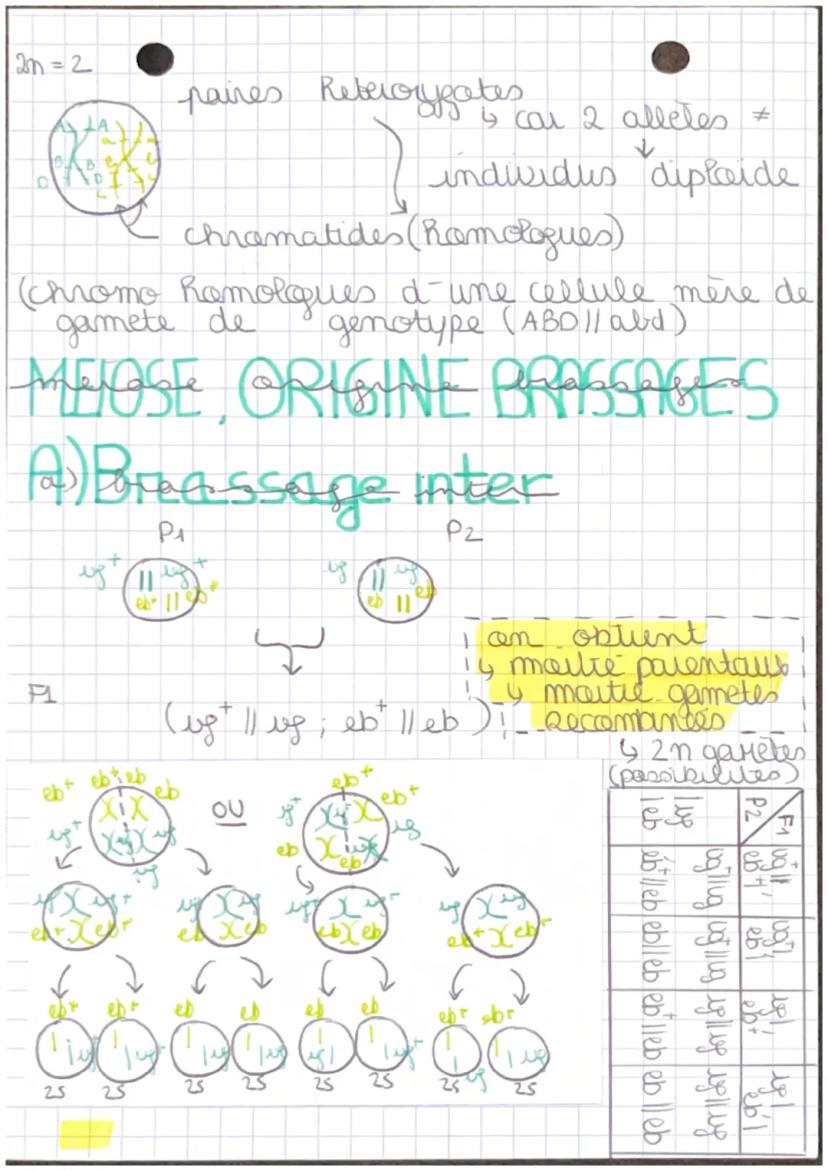 2n = 2
paires Hétérozygotes
↳ car 2 allèles ≠
individus diploïde
chromatides (homologues)
A A
B B
D D
(chromo homologues d'une cellule mère de
gamète de génotype (ABD//abd)
MEIOSE, ORIGINE BRASSAGES
meiose, origine brassages
A) Brassage inter
a) Brassage inter
P1 P2
vg⁺ || vg⁺
eb⁺ || eb⁺
vg || vg
eb || eb
on obtient
↳ moitié parentaux
↳ moitié gamètes
recombinés
F1
(vg⁺ // vg ; eb⁺ // eb)
↳ 2n gamètes
(possibilités)
eb⁺ eb⁺ eb eb
vg⁺ vg
vg
OU
eb⁺ eb⁺
vg⁺ vg
eb eb
vg⁺ vg⁺
eb⁺ eb⁺
vg vg
eb eb
vg⁺ vg⁺
eb eb
vg vg
eb⁺ eb⁺
eb⁺ eb⁺ eb eb eb eb eb⁺ eb⁺
vg⁺ vg⁺ vg vg vg⁺ vg⁺ vg vg
25 25 25 25 25 25 25 25
P2 F1
vg⁺/ eb⁺/
vg⁺/ eb/
vg/ eb⁺/
vg/ eb/
vg/ eb/
vg⁺//vg eb⁺//eb
vg⁺//vg eb//eb
vg//vg eb⁺//eb
vg//vg eb//eb